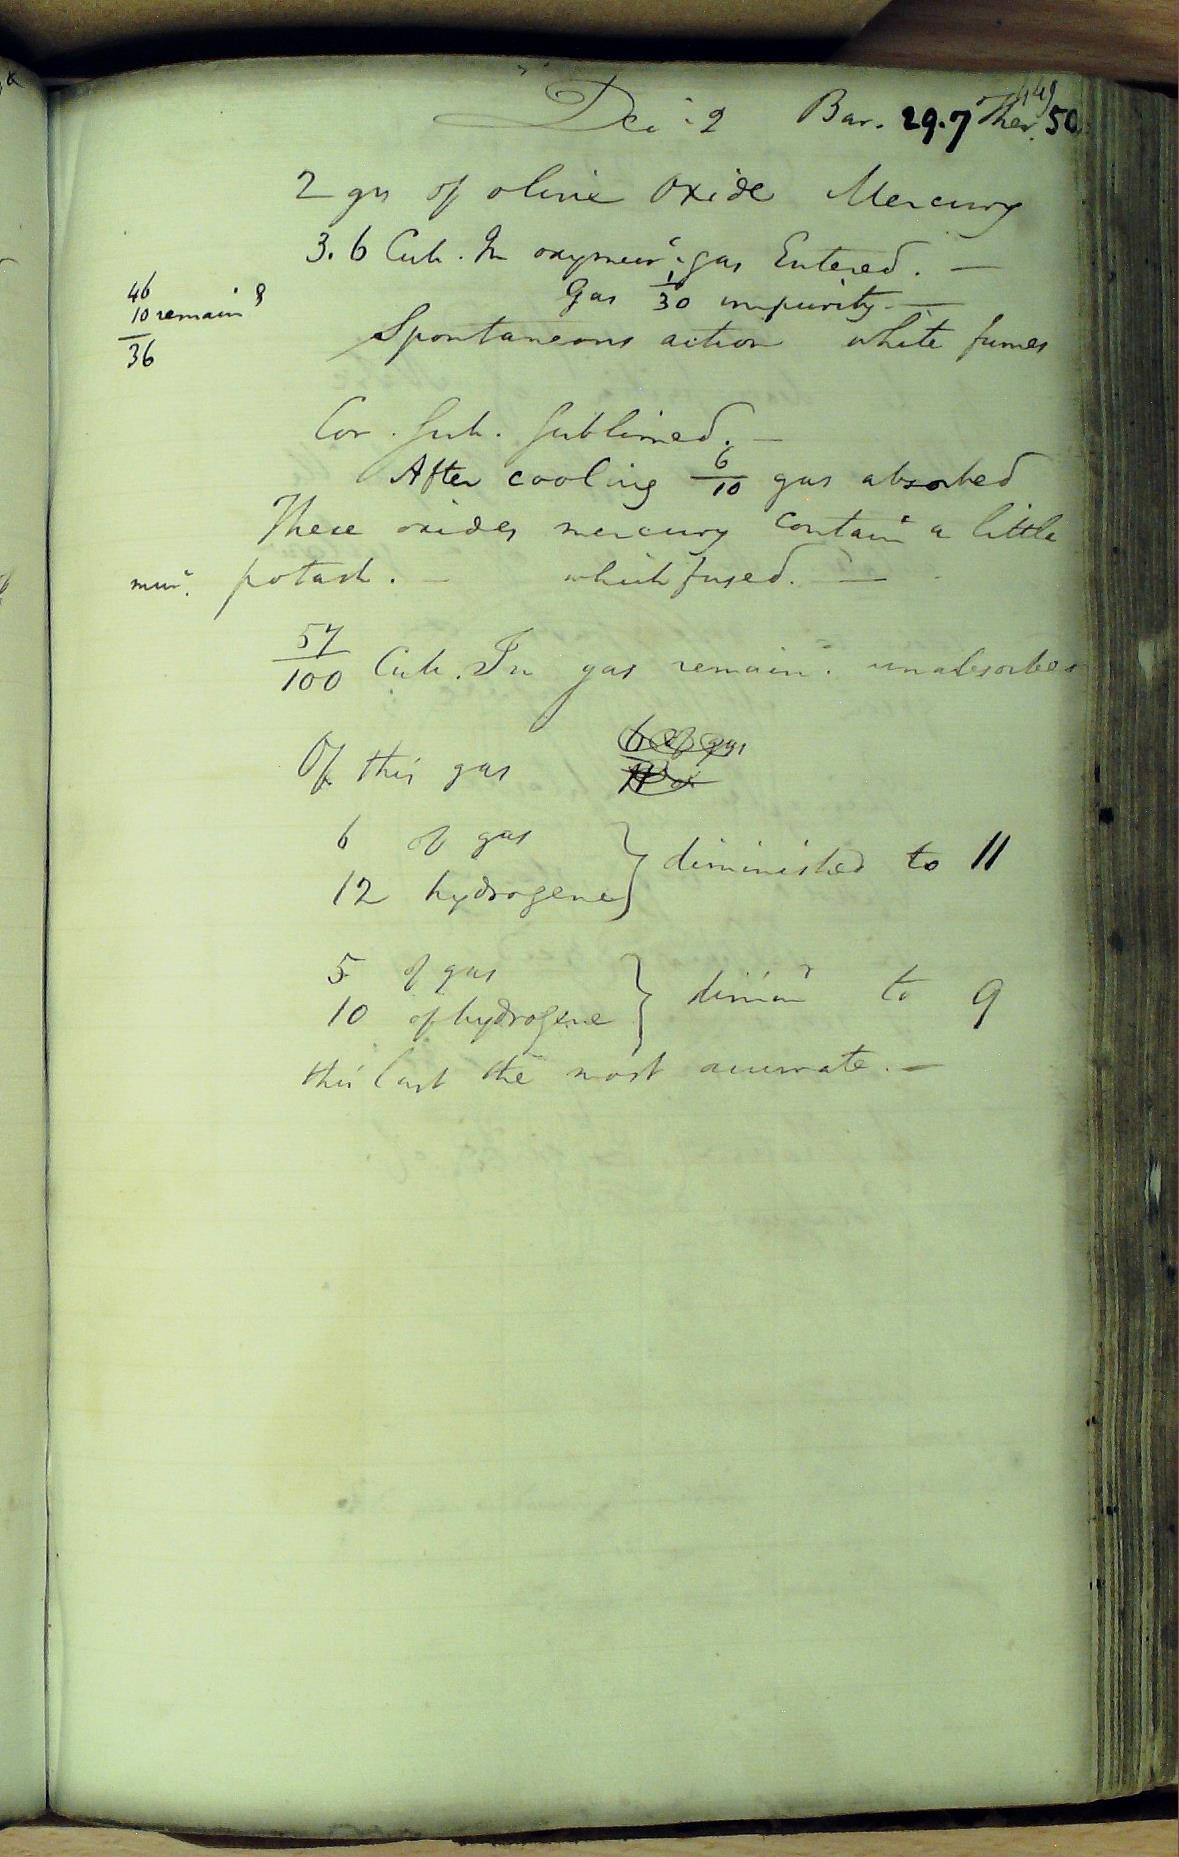 449
Dec: 2 Bar. 29.7 Ther. 50
2 grs of olive Oxide Mercury
3.6 Cub. In oxymur: gas Entered. —
Gas 1/30 impurity —
46
10 remaind
36
Spontaneous action white fumes
Cor. sub. sublimed. —
After cooling 6/10 gas absorbed
These oxides mercury contain a little
mur: potash. — which fused. —
57/100 Cub. In gas remain: unabsorbed
Of this gas
6 of gas
12 hydrogene } diminished to 11
5 of gas
10 of hydrogene } dimin to 9
this last the most accurate. —